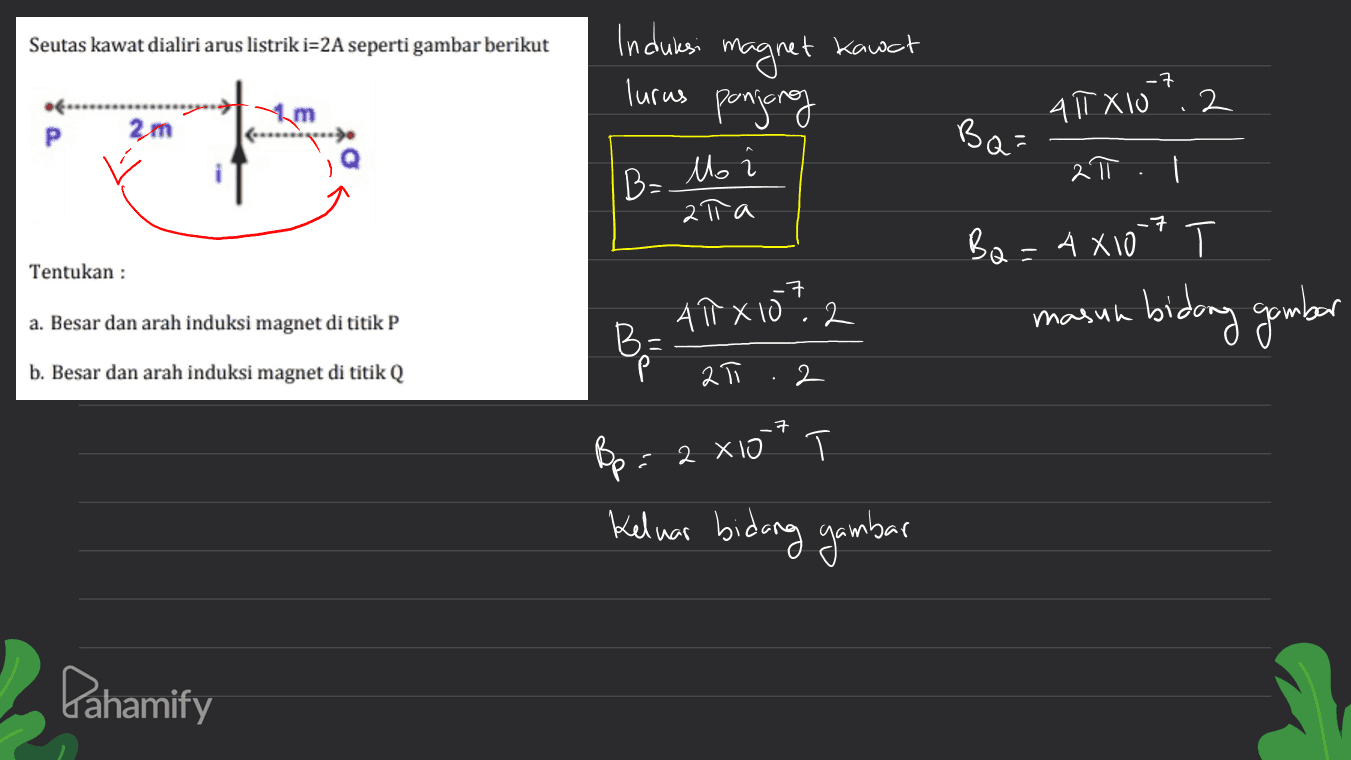 Seutas kawat dialiri arus listrik i=2A seperti gambar berikut
P
2 m
1 m
Q
i
Tentukan :
a. Besar dan arah induksi magnet di titik P
b. Besar dan arah induksi magnet di titik Q
Induksi magnet kawat
lurus panjang
B = μ₀ i / 2π a
Bp = 4π × 10⁻⁷ . 2 / 2π . 2
Bp = 2 × 10⁻⁷ T
Keluar bidang gambar
BQ = 4π × 10⁻⁷ . 2 / 2π . 1
BQ = 4 × 10⁻⁷ T
masuk bidang gambar
Pahamify